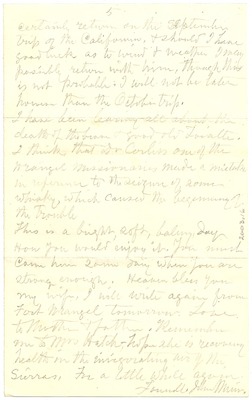 5
certainly return on the September
trip of the California, & should I have
good luck as to wind & weather I may
possibly return with him, though this
is not probable. I will not be later
home than the October trip.
I have been learning all about the
death of the brave & good old Toyatte.
I think that Dr Corliss one of the
Wrangel missionaries made a mistake
in reference to the seizure of some
whisky, which caused the beginning of
the trouble.
This is a bright, soft, balmy day
How you would enjoy it. You must
come here some day when you are
strong enough. Heaven bless you
my wife, I will write again from
Fort Wrangel tomorrow. Love
to Mother & father. Remember
me to Mrs Hatch. Hope she is recovering
health on the invigorating air of the
Sierras. For a little while again
Farewell. John Muir.